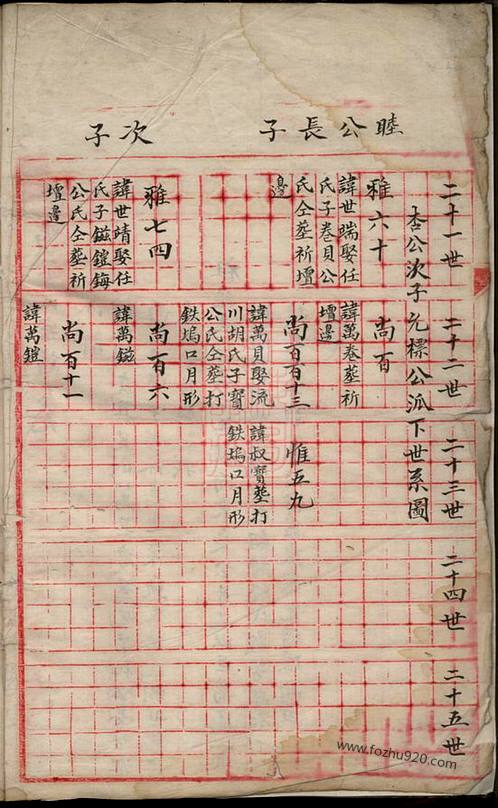 睦公長子
次子
二十一世
二十二世
二十三世
二十四世
二十五世
杏公次子允標公派下世系圖
雅六十
諱世瑞娶任
氏子卷貝公
氏仝塟祈壇
邊
雅七四
諱世靖娶任
氏子鎡鎧鋂
公氏仝塟祈
壇邊
尚百
諱萬卷塟祈
壇邊
尚百百十三
諱萬貝娶流
川胡氏子寶
公氏仝塟打
鉄塢口月形
尚百六
諱萬鎡
尚百十一
諱萬鎧
惟五九
諱叔寶塟打
鉄塢口月形
www.fozhu920.com